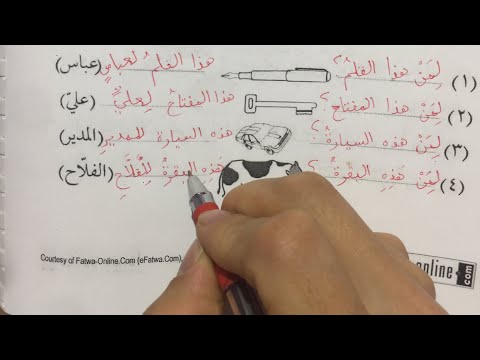 (١) لِمَنْ هذا القلمُ؟ هذا القلمُ لعباسٍ (عباس)
(٢) لِمَنْ هذا المفتاح؟ هذا المفتاحُ لِعليٍّ (عليّ)
(٣) لِمَنْ هذه السيارةُ؟ هذه السيارة للمدير (المدير)
(٤) لِمَنْ هَذِهِ البقرةُ؟ هَذه البقرةُ لِلْفَلَّاحِ (الفلّاح)
Courtesy of Fatwa-Online.Com (eFatwa.Com),
online.com